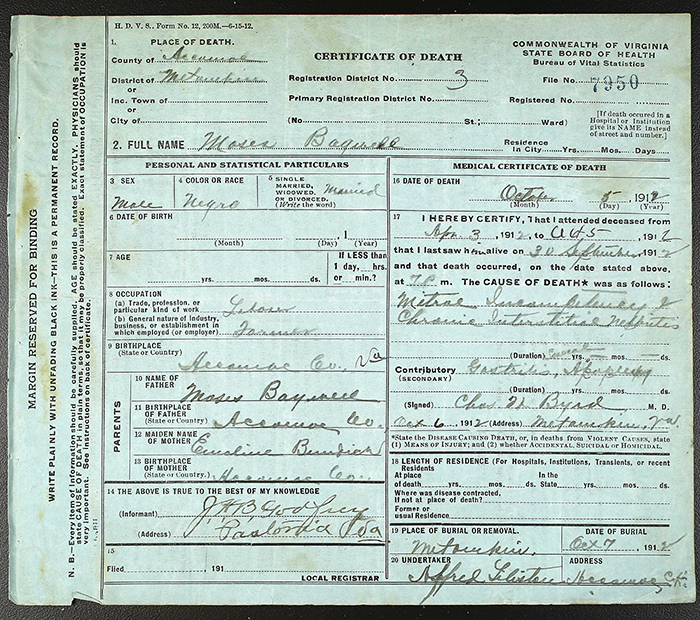 H. D. V. S., Form No. 12, 200M.—6-15-12.
1. PLACE OF DEATH.
County of Accomac
District of Metompkin
or
Inc. Town of
or
City of
CERTIFICATE OF DEATH
Registration District No. 3
Primary Registration District No.
(No. St.; Ward)
COMMONWEALTH OF VIRGINIA
STATE BOARD OF HEALTH
Bureau of Vital Statistics
File No. 7950
Registered No.
[If death occured in a
Hospital or Institution
give its NAME instead
of street and number.]
2. FULL NAME Moses Bagwell
Residence
In City Yrs. Mos. Days
PERSONAL AND STATISTICAL PARTICULARS
3 SEX
Male
4 COLOR OR RACE
Negro
5 SINGLE
MARRIED,
WIDOWED,
OR DIVORCED.
(Write the word)
Married
6 DATE OF BIRTH
(Month) (Day) 1 (Year)
7 AGE
yrs. mos. ds.
If LESS than
1 day, hrs.
or min.?
8 OCCUPATION
(a) Trade, profession, or
particular kind of work Laborer
(b) General nature of industry,
business, or establishment in
which employed (or employer). Farmer
9 BIRTHPLACE
(State or Country) Accomac Co., Va
PARENTS
10 NAME OF
FATHER
Moses Bagwell
11 BIRTHPLACE
OF FATHER
(State or Country) Accomac Co.
12 MAIDEN NAME
OF MOTHER
Emoline
13 BIRTHPLACE
OF MOTHER
(State or Country.) Accomac Co.
14 THE ABOVE IS TRUE TO THE BEST OF MY KNOWLEDGE
(Informant) J. H. B. Godfrey
(Address) Pastoria Va
15
Filed 191
LOCAL REGISTRAR
MEDICAL CERTIFICATE OF DEATH
16 DATE OF DEATH
Octob. 5 1912
(Month) (Day) (Year)
17 I HEREBY CERTIFY, That I attended deceased from
Apr. 3 1912 to Oct 5 1912
that I last saw h alive on 30 September 1912
and that death occurred, on the date stated above,
at m. The CAUSE OF DEATH* was as follows:
Mitral Incompetency &
Chronic Interstitial Nephritis
(Duration) Several yrs. mos. ds.
Contributory Gastritis, Apoplexy
(SECONDARY)
(Duration) yrs. mos. ds.
(Signed) Chas. Byrd M. D.
Oct 6 1912 (Address) Metompkin, Va.
*State the DISEASE CAUSING DEATH, or, in deaths from VIOLENT CAUSES, state
(1) MEANS OF INJURY; and (2) whether ACCIDENTAL, SUICIDAL or HOMICIDAL.
18 LENGTH OF RESIDENCE (For Hospitals, Institutions, Transients, or recent
Residents
At place In the
of death yrs. mos. ds. State yrs. mos. ds.
Where was disease contracted,
if not at place of death?
Former or
usual Residence
19 PLACE OF BURIAL OR REMOVAL.
Metompkin.
DATE OF BURIAL
Oct 7 1912
20 UNDERTAKER
Alfred
ADDRESS
Accomac, C.H.
MARGIN RESERVED FOR BINDING
WRITE PLAINLY WITH UNFADING BLACK INK—THIS IS A PERMANENT RECORD.
N. B.—Every item of information should be carefully supplied. AGE should be stated EXACTLY. PHYSICIANS should
state CAUSE OF DEATH in plain terms, so that it may be properly classified. Exact statement of OCCUPATION is
very important. See instructions on back of certificate.